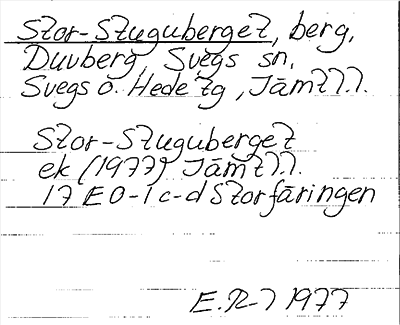 Stor-Stuguberget, berg,
Duvberg, Svegs sn,
Svegs o. Hede tg, Jämtl.l.
Stor-Stuguberget
ek (1977) Jämtl.l.
17 E 0-1 c-d Storfäringen
E.R-l 1977